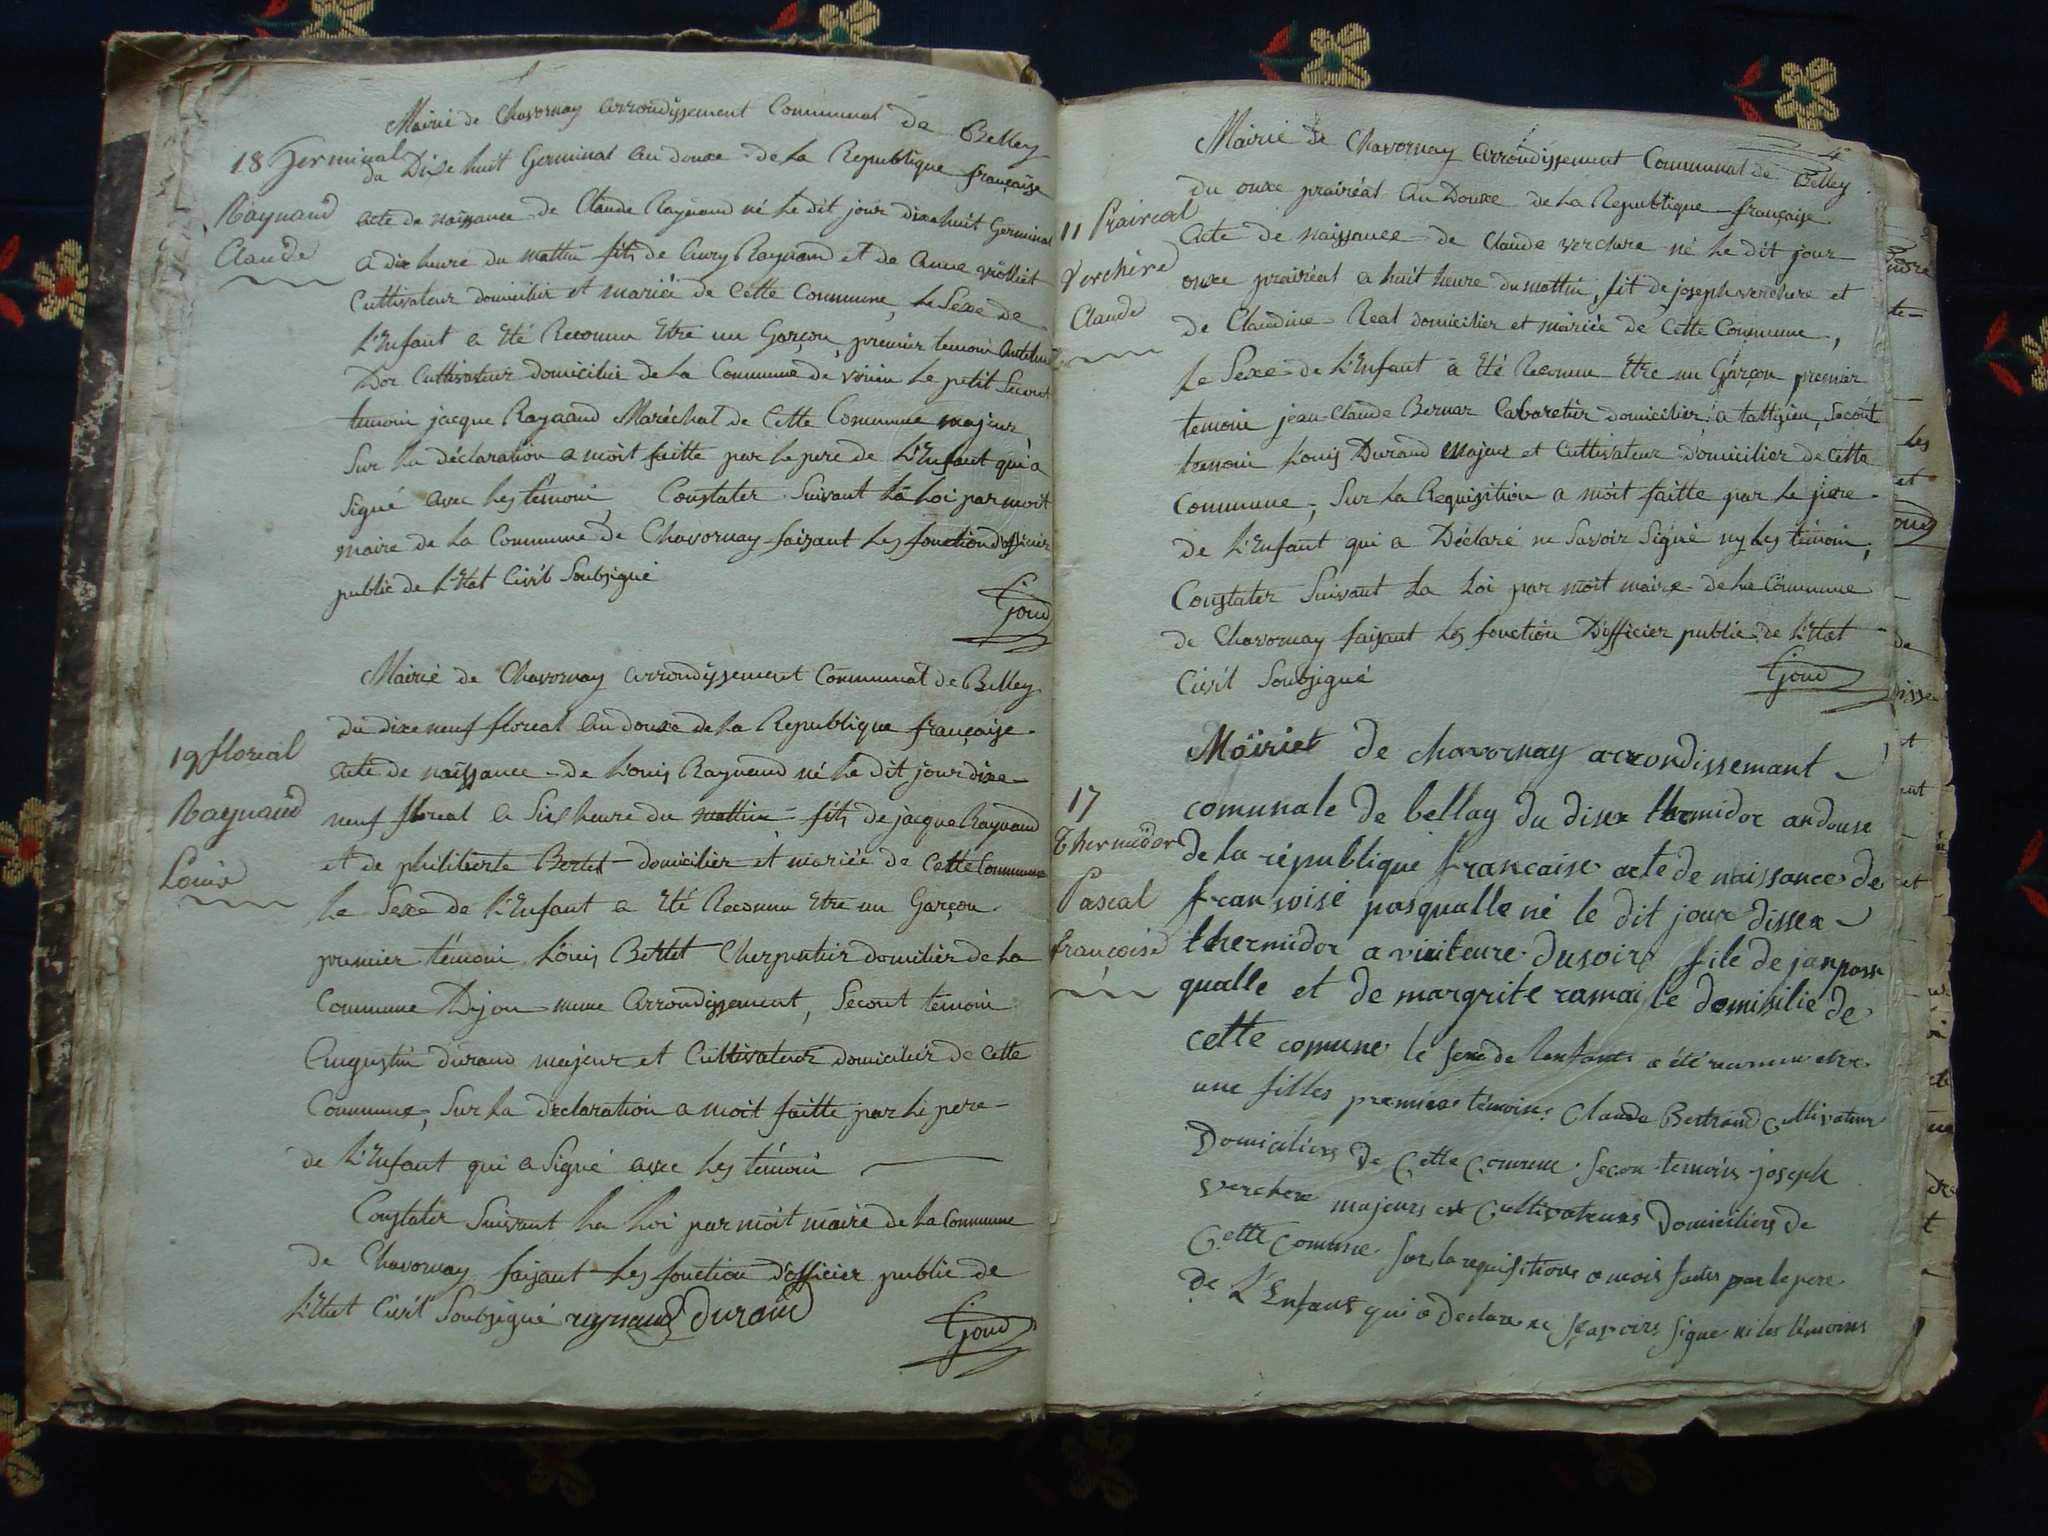 Mairie de Chavornay arrondissement Communal de Belley
18 Germinal
Raynaud
Claude
du Dixe huit Germinal an douxe de la Republique française
acte de naissance de Claude Raynaud né le dit jour dixe huit Germinal
a dix heure du mattin fils de Aury Raynaud et de Anne
Cultivateur domicilier et mariée de Cette Commune, Le Sexe de
L'Enfant a Eté Reconnu Etre un Garçon, premier temoin Antelme
Dor Cultivateur domicilié de la Commune de virieu le petit Secont
temoin jacque Raynaud Maréchal de Cette Commune majeur
Sur La déclaration a moit faitte par le pere de L'Enfant qui a
Signé avec les temoin, Constater Suivant La Loi par moit
maire de la Commune de Chavornay faisant les fonction d'officier
public de L'Etat Civil Soubsigné
Goud
Mairie de Chavornay arrondissement Communal de Belley
19 floreal
Raynaud
Louis
du dixe neuf floreal an douxe de la Republique française
acte de naissance de Louis Raynaud né le dit jour dixe
neuf floreal a Six heure du mattin fils de jacque Raynaud
et de philiberte Bertet domicilier et mariée de Cette Commune
Le Sexe de L'Enfant a Eté Reconnu Etre un Garçon
premier témoin Louis Bertet Cherpentier domicilier de la
Commune Dijon meme Arrondissement, Secont temoin
Augustin durand majeur et Cultivateur domicilier de Cette
Commune, Sur La declaration a moit faitte par le pere
de L'Enfant qui a Signé avec les témoin
Constater Suivant La Loi par moit maire de la Commune
de Chavornay faisant les fonction d'officier public de
L'Etat Civil Soubsigné raynaud Durand
Goud
4
Mairie de Chavornay arrondissement Communal de Belley
11 Prairéal
Verchère
Claude
du onxe prairéal an Douxe de la Republique française
Acte de naissance de Claude verchere né le dit jour
onxe prairéal a huit heure du mattin, fit de joseph verchere et
de Claudine Real domicilier et mariée de Cette Commune,
Le Sexe de L'Enfant a Eté Reconnu Etre un Garçon premier
temoin jean Claude Bernar Cabaretier domicilier a talissieu, Secont
temoin Louis Durand majeur et Cultivateur domicilier de Cette
Commune, Sur La Requisition a moit faitte par le pere
de L'Enfant qui a Déclaré ne Savoir Signé ny les témoin,
Constater Suivant La Loi par moit maire de la Commune
de Chavornay faisant les fonction D'officier public de L'Etat
Civil Soubsigné
Goud
Mairiet de chavornay arrondissemant
17
Thermidor
Pascal
françoise
comunale de bellay du disex thermidor an douse
de la république francaise acte de naissance de
fransoise pasqualle né le dit jour dissex
thermidor a viiteure du soir file de jan pass
qualle et de margrite ramai le domisilie de
cette comune le sexe de lenfant a été reconnu etre
une filles premier témoins Claude Bertrand Cultivateur
Domiciliers de Cette Comune secon temoin joseph
verchere majeurs et Cultivateurs Domiciliers de
Cette Comune Sur la requisitions a mois faites par le pere
de L'Enfant qui a Declare ne Sçavoirs signe ni les témoins